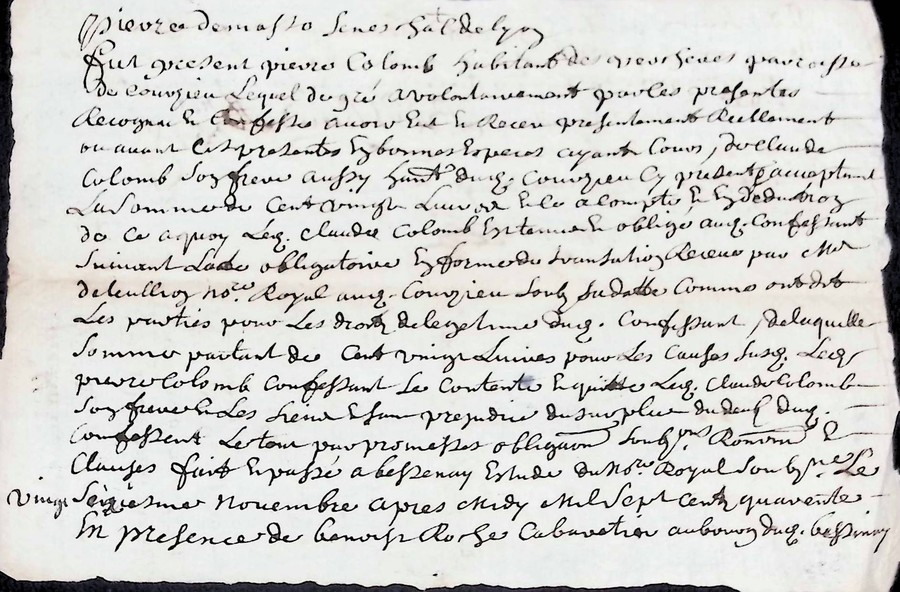 pierre demasso seneschal de lyon
fut present pierre Colomb habitant des paroisse
de courzieu Lequel de gré & volontairement par les presentes
Recognoi & Confesse avoir Eut & Receu presentement Reellement
ou avant Ces presentes En bonnes Especes ayant Cours, de Claude
Colomb son frere aussy habt. dud. Courzieu Cy present & acceptant
La somme de Cent vingt Livres & Ce a Compte &
de Ce a quoy Led. Claude Colomb Est tenu & obligé aud. Confessant
suivant Lacte obligatoire En forme de transation Receu par Me
no.re Royal aud. Courzieu soub sa datte Comme ont dit
Les parties pour Les droits de legitime dud. Confessant, de laquelle
somme partant de Cent vingt Livres pour Les Causes susd. Led.
pierre Colomb Confessant se Contente & quitte Led. Claude Colomb
son frere & Les siens & sans prejudice du surplus du deub dud.
Confessant Le tout par promesses obligaons soubmons Renonons &
Clauses fait & passé a bessenay Estude du No.re Royal soub.né Le
vingt seiziesme novembre apres Midy Mil sept Cents quarente
En presence de benoist Roche Cabaretier au bourg dud. bessenay